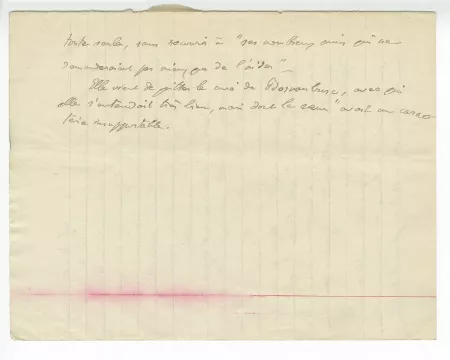 toute seule, sans recourir à "ses nombreux amis qui ne
demanderaient pas mieux que de l'aider" –
Elle vient de quitter le curé de, avec qui
elle s'entendait très bien, mais dont la sœur "avait un carac-
tère insupportable.